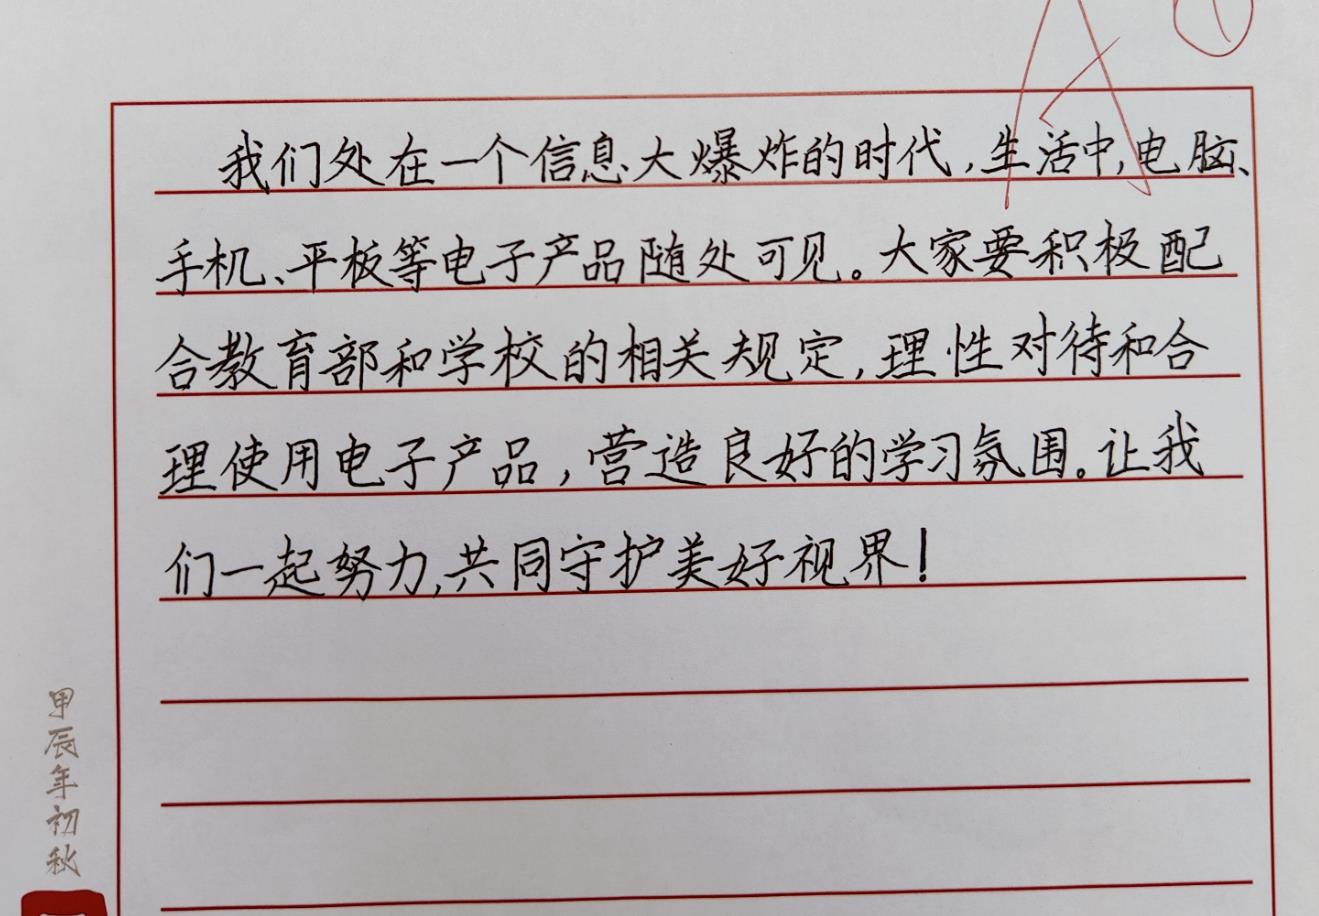 我们处在一个信息大爆炸的时代,生活中,电脑、
手机、平板等电子产品随处可见。大家要积极配
合教育部和学校的相关规定,理性对待和合
理使用电子产品,营造良好的学习氛围。让我
们一起努力,共同守护美好视界!
甲辰年初秋
A